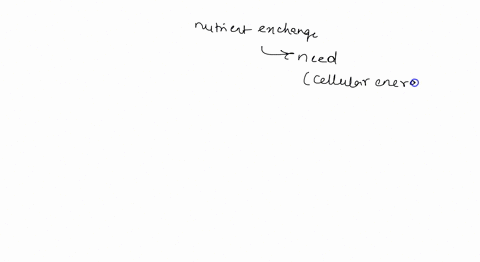 nutrient exchange
need
(cellular ener